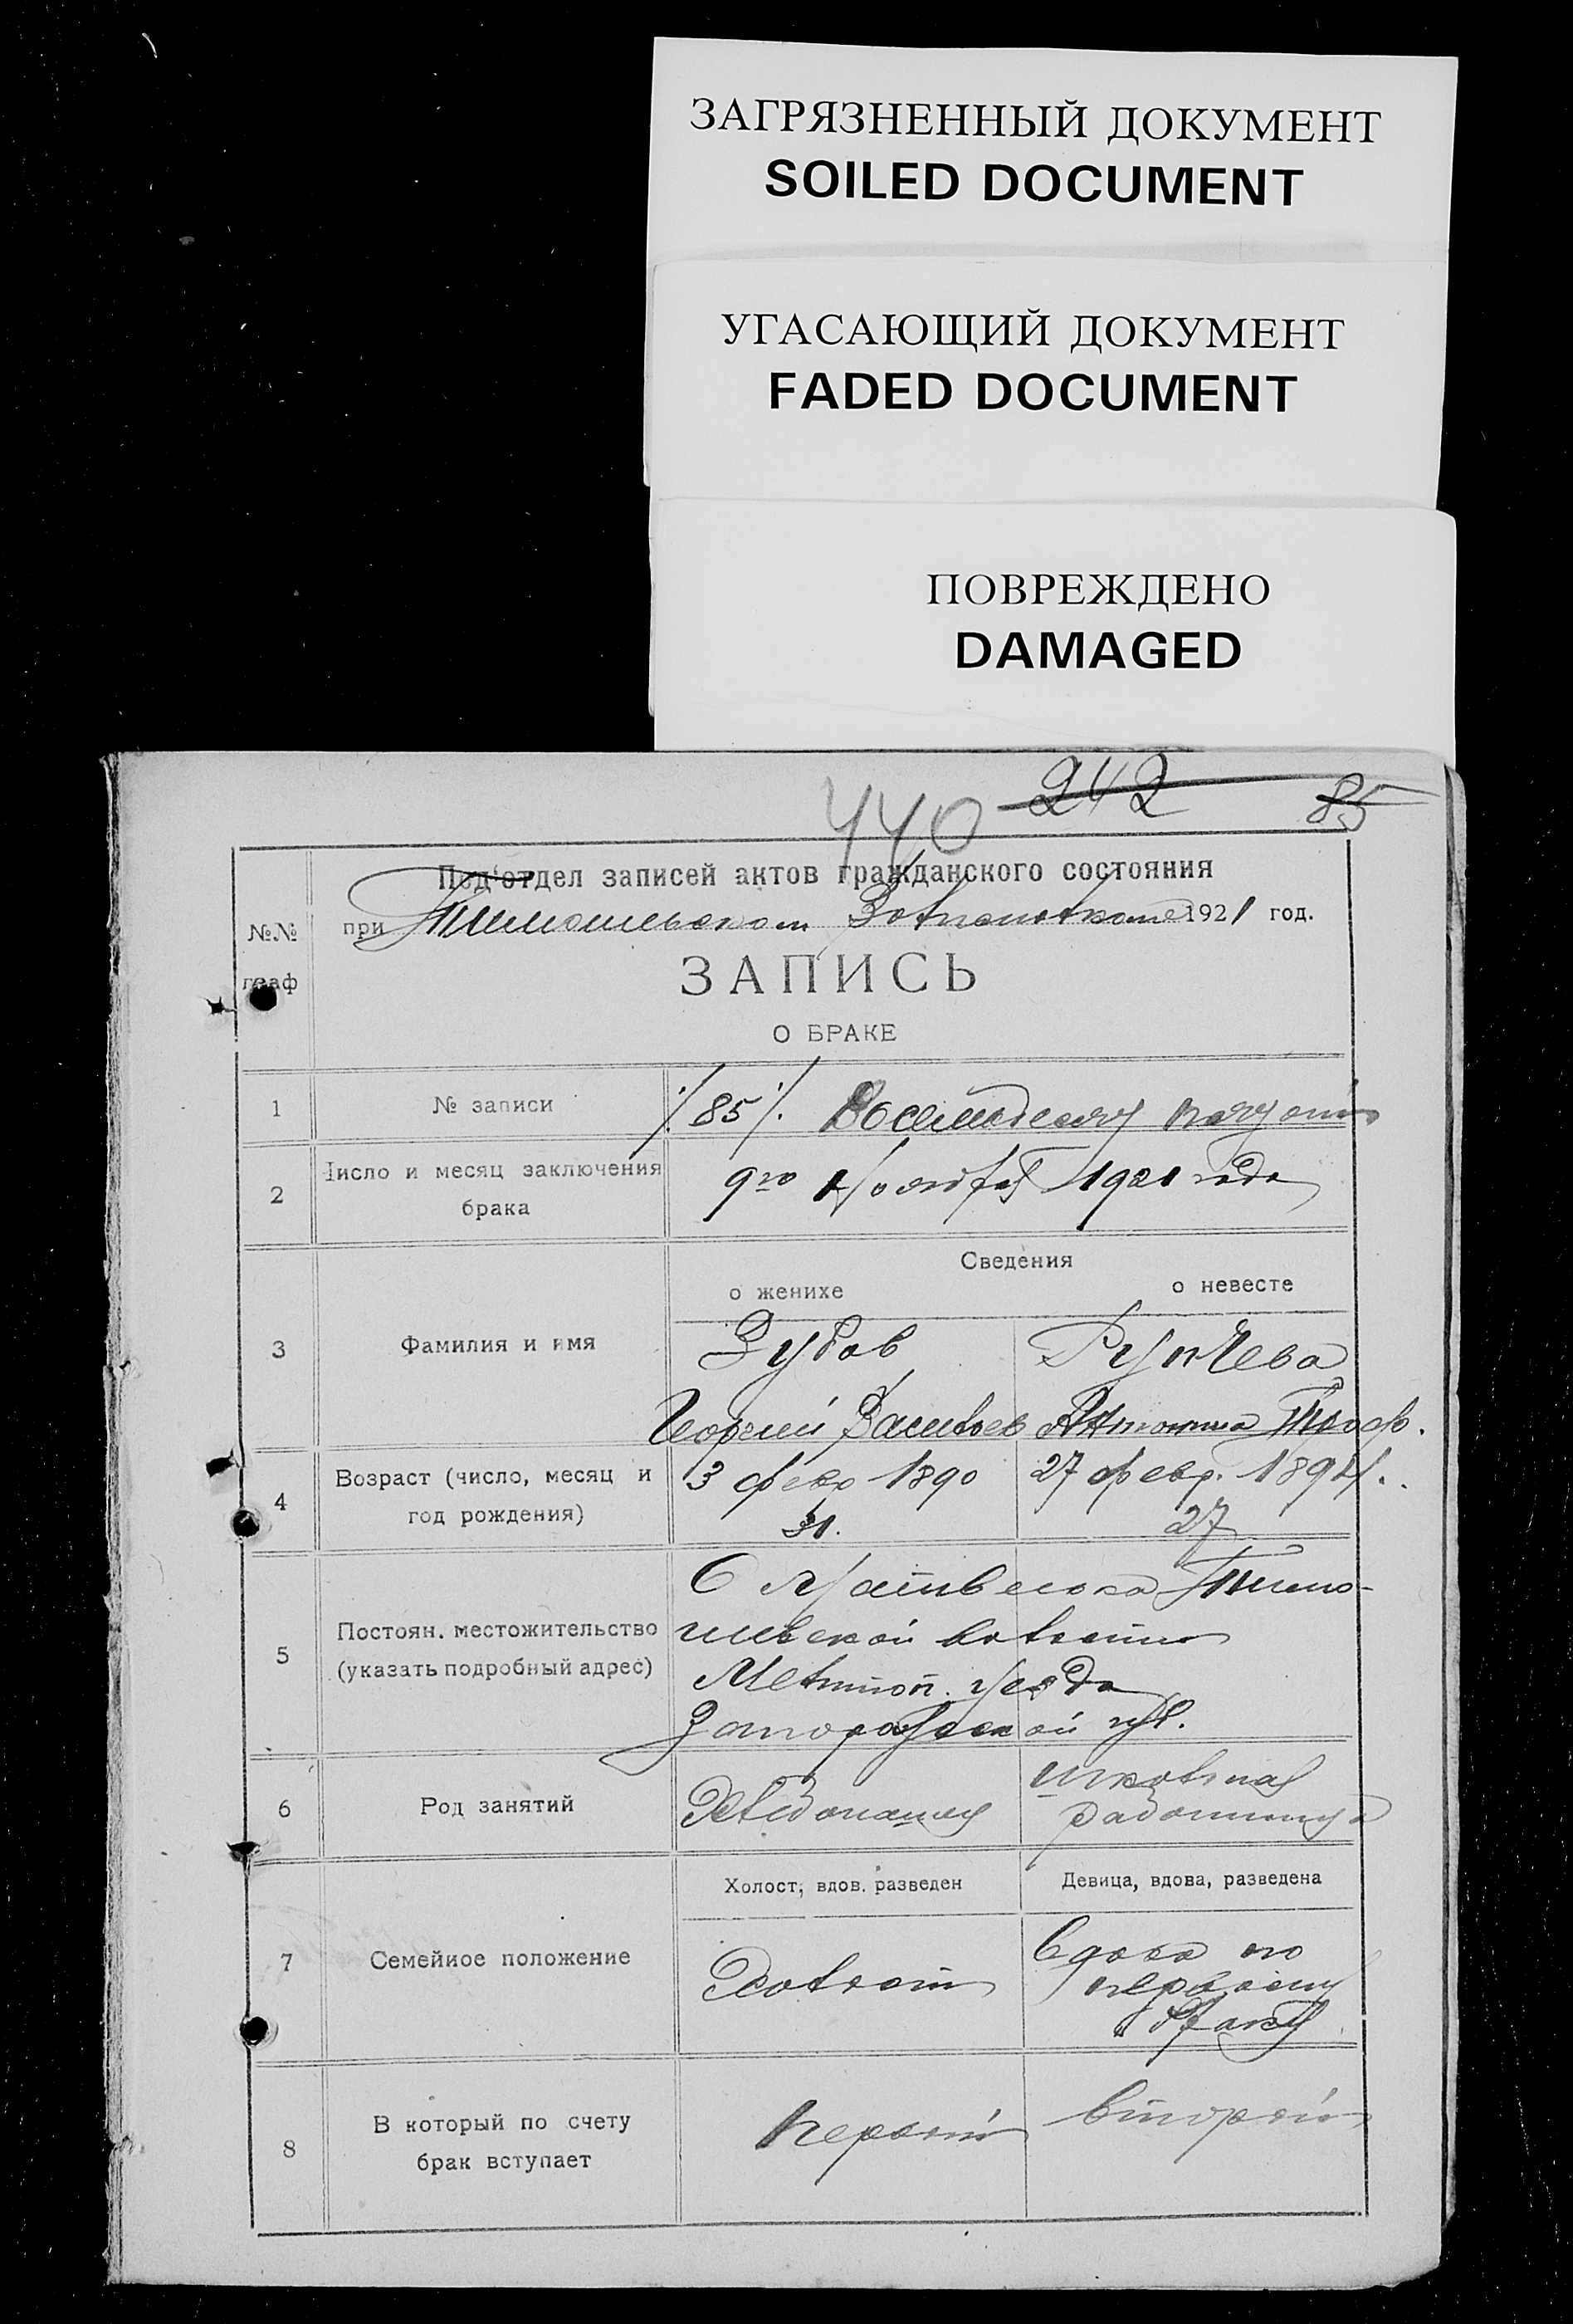 ЗАГРЯЗНЕННЫЙ ДОКУМЕНТ
SOILED DOCUMENT
УГАСАЮЩИЙ ДОКУМЕНТ
FADED DOCUMENT
ПОВРЕЖДЕНО
DAMAGED
440 242 85
Под'отдел записей актов гражданского состояния
№№ при 1921 год.
граф
ЗАПИСЬ
О БРАКЕ
1 № записи 85
2 Число и месяц заключения брака 9го Ноября 1921 года
Сведения
о женихе о невесте
3 Фамилия и имя Зубов
Георгий Васильев Антонина Троф.
4 Возраст (число, месяц и год рождения) 3 февр 1890 27 февр. 1894.
31. 27
5 Постоян. местожительство (указать подробный адрес) С Матвеевка Тимо-
шевской волости
Мелитоп. уезда
Запорожской губ.
6 Род занятий Хлебопашец школьная работница
Холост, вдов. разведен Девица, вдова, разведена
7 Семейное положение Холост Вдова по
первому
браку
8 В который по счету брак вступает Первый второй